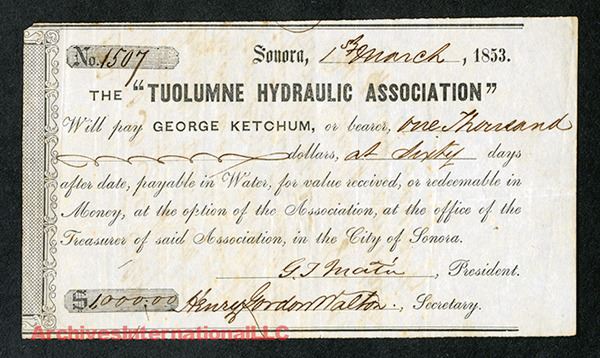 No. 1507 Sonora, 1st March, 1853.
THE "TUOLUMNE HYDRAULIC ASSOCIATION"
Will pay GEORGE KETCHUM, or bearer, One Thousand
dollars, at Sixty days
after date, payable in Water, for value received, or redeemable in
Money, at the option of the Association, at the office of the
Treasurer of said Association, in the City of Sonora.
G. , President.
$1000.00 Henry Gordon Walton., Secretary.
ArchivesInternationalLLC